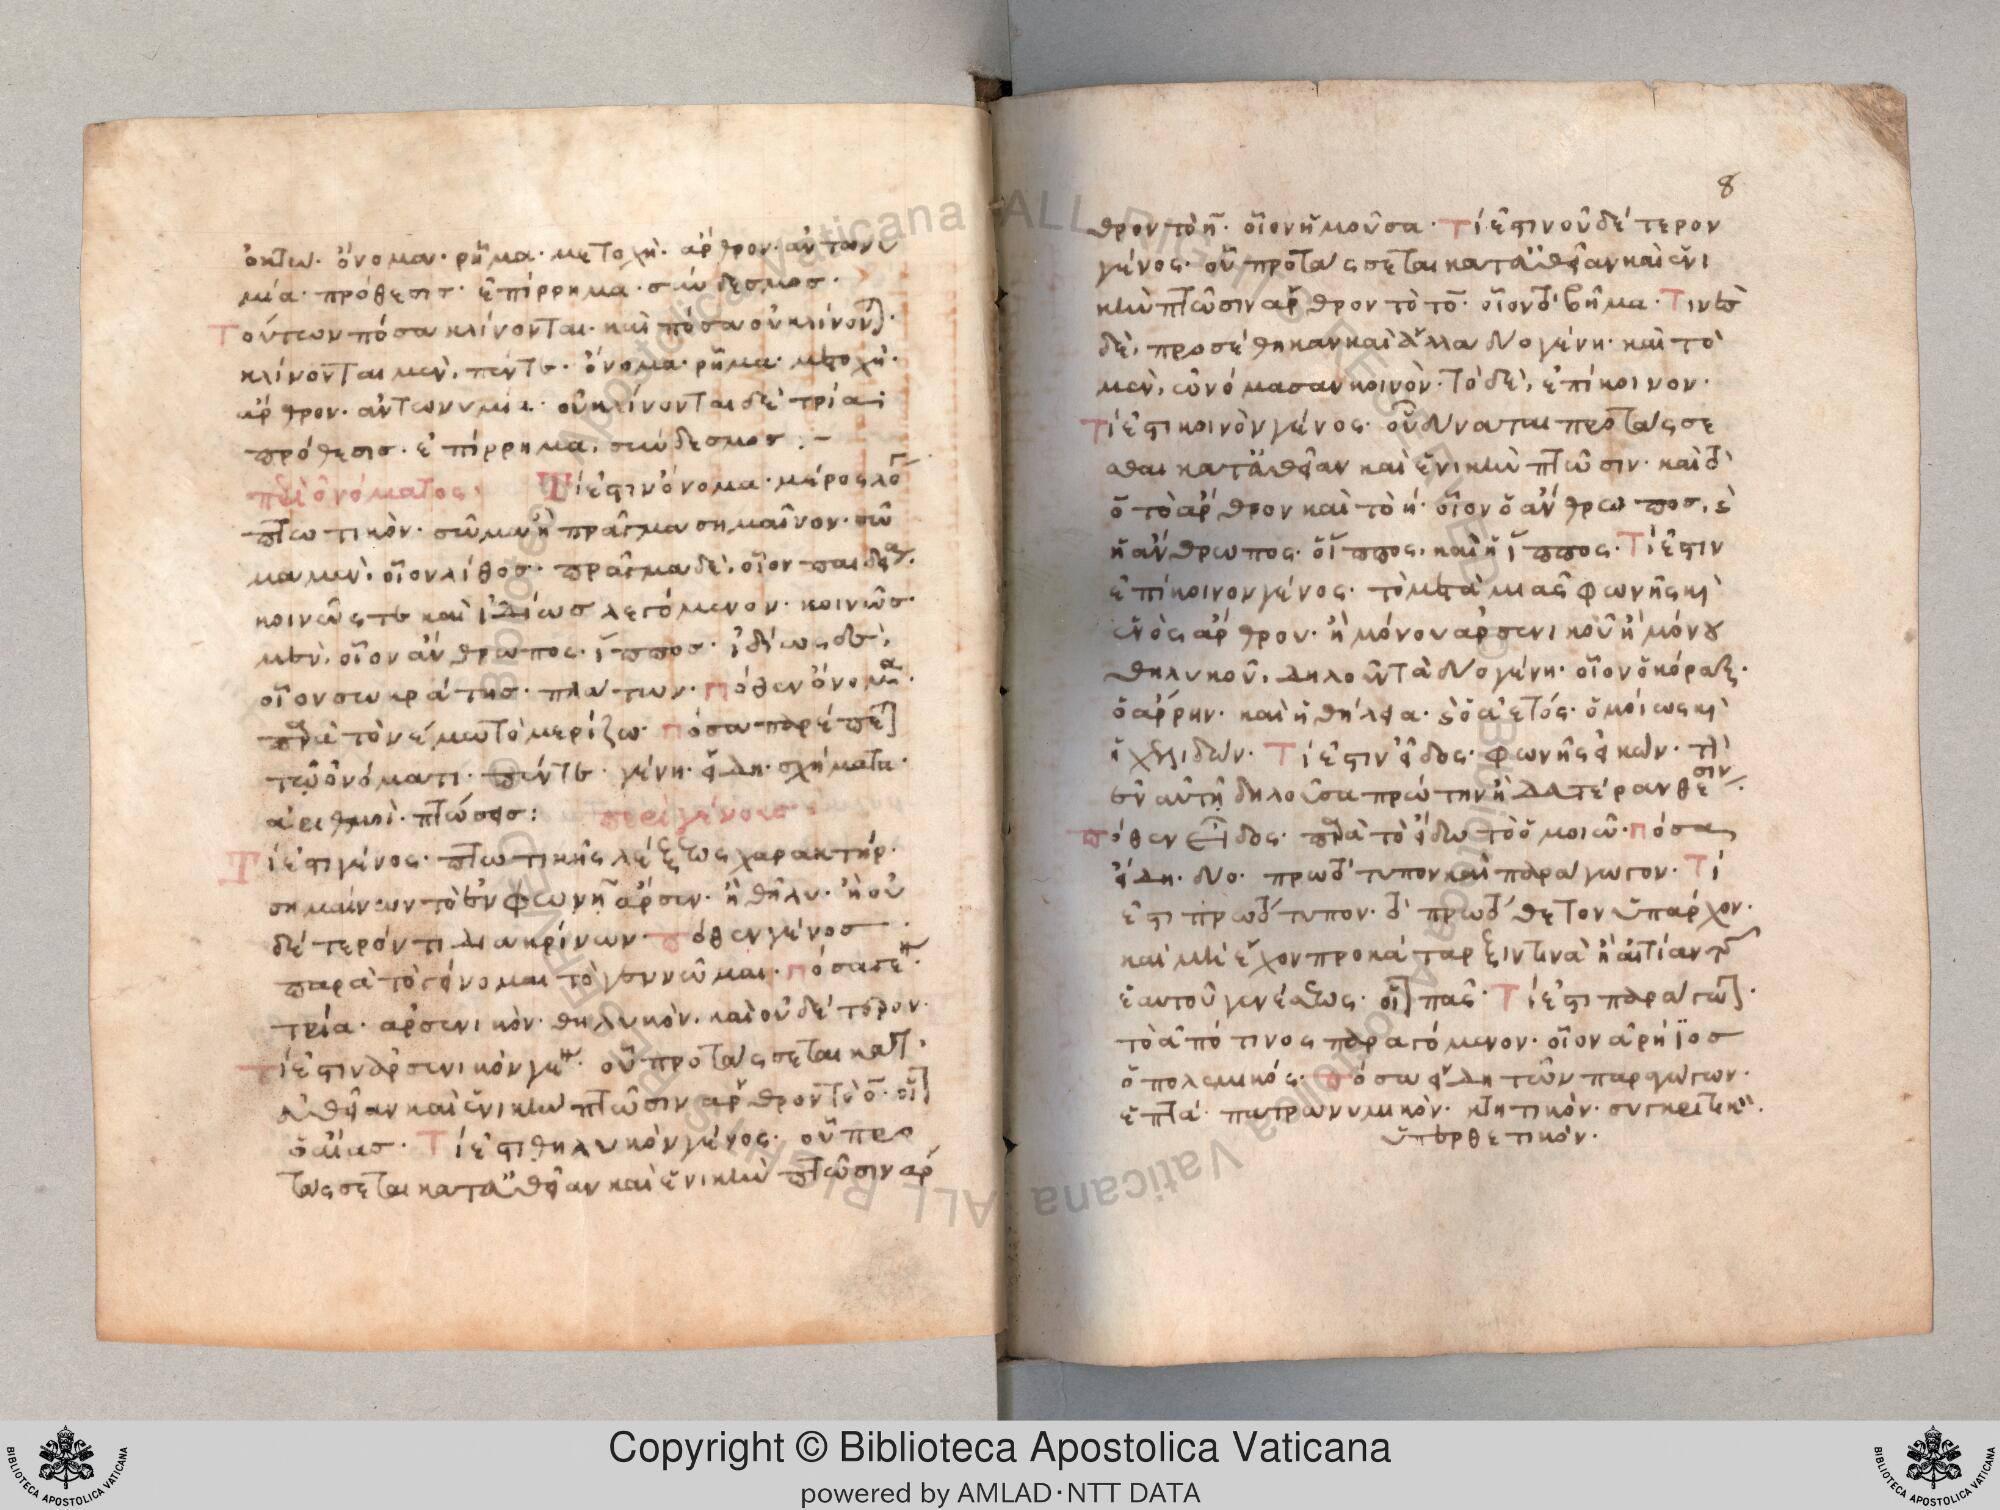 ὀκτώ· ὄνομα· ῥῆμα· μετοχὴ· ἄρθρον· ἀντωνυ
μία· πρόθεσις· ἐπίρρημα· σύνδεσμος·
Τούτων πόσα κλίνονται· καὶ πόσα οὐ κλίνον]·
κλίνονται μὲν, πέντε· ὄνομα· ῥῆμα· μετοχὴ·
ἄρθρον· ἀντωνυμία· οὐ κλίνονται δὲ τρία·
πρόθεσις· ἐπίρρημα, σύνδεσμος :-
περὶ ὀνόματος· Τί ἐστιν ὄνομα· μέρος λό
πτωτικὸν· σῶμα ἢ πρᾶγμα σημαῖνον· σῶ
μα μὲν, οἷον λίθος· πρᾶγμα δὲ, οἷον παιδεία·
κοινῶς τε καὶ ἰδίως λεγόμενον· κοινῶς
μὲν, οἷον ἄνθρωπος· ἵππος· ἰδίως δὲ,
οἷον σωκράτης· πλάτων· πόθεν ὄνομα·
παρὰ τὸ νέμω τὸ μερίζω· πόσα παρέπε]
τῷ ὀνόματι· πέντε· γένη· εἴδη· σχήματα·
ἀριθμοὶ· πτώσεις: περὶ γένους
Τί ἐστι γένος· πτωτικῆς λέξεως χαρακτήρ·
σημαίνων τὸ ἐν φωνῇ ἄρσεν· ἢ θῆλυ· ἢ οὐ
δέτερόν τι διακρίνων· πόθεν γένος
παρὰ τὸ γίνομαι τὸ γεννῶμαι· πόσα γέη·
τρία· ἀρσενικὸν· θηλυκὸν, καὶ οὐδέτερον·
Τί ἐστιν ἀρσενικὸν γέν· οὗ προτάσσεται κατ·
εὐθεῖαν καὶ ἑνικὴν πτῶσιν ἄρθρον τὸ ὁ· οἷ]
ὁ αἴας· Τί ἐστι θηλυκὸν γένος· οὗ προ
τάσσεται κατ' εὐθεῖαν καὶ ἑνικὴν πτῶσιν ἄρ
8
θρον τὸ ἡ· οἷον ἡ μοῦσα· Τί ἐστιν οὐδέτερον
γένος· οὗ προτάσσεται κατ' εὐθεῖαν καὶ ἑνι
κὴν πτῶσιν ἄρθρον τὸ τὸ· οἷον τὸ βῆμα· Τινὲς
δὲ, προσέθηκαν καὶ ἄλλα δύο γένη· καὶ τὸ
μὲν, ὠνόμασαν κοινὸν· τὸ δὲ, ἐπίκοινον·
Τί ἐστι κοινὸν γένος· οὗ δύναται προτάσσε
σθαι κατ' εὐθεῖαν καὶ ἑνικὴν πτῶσιν· καὶ τὸ
ὁ τὸ ἄρθρον καὶ τὸ ἡ· οἷον ὁ ἄνθρωπος, καὶ
ἡ ἄνθρωπος· ὁ ἵππος, καὶ ἡ ἵππος· Τί ἐστιν
ἐπίκοινον γένος· τὸ μετὰ μιᾶς φωνῆς καὶ
ἑνὸς ἄρθρου· ἢ μόνου ἀρσενικοῦ ἢ μόνου
θηλυκοῦ, δηλοῦν τὰ δύο γένη· οἷον ὁ κόραξ·
ὁ ἄρρην· καὶ ἡ θήλεια· καὶ ὁ ἀετός· ὁμοίως καὶ
ἡ χελιδών· Τί ἐστιν εἶδος· φωνῆς εἰκὼν· τὴν
ἐν αὐτῇ δηλοῦσα πρώτην ἢ δευτέραν θέσιν·
πόθεν εἶδος· παρὰ τὸ εἴδω τὸ ὁμοιῶ· πόσα
εἴδη· δύο· πρωτότυπον καὶ παράγωγον· Τί
ἐστι πρωτότυπον· τὸ πρωτόθετον ὑπάρχον·
καὶ μὴ ἔχον προκάταρξιν τινὰ ἢ αἰτίαν τῆς
ἑαυτοῦ γενέσεως· οἷ] παῖς· Τί ἐστι παράγω]·
τὸ ἀπό τινος παραγόμενον· οἷον ἀρήϊος
ὁ πολεμικός· πόσα εἴδη τῶν παραγώγων·
ἑπτά· πατρωνυμικὸν· κτητικὸν· συγκριτικὸν·
ὑπερθετικὸν·
Copyright © Biblioteca Apostolica Vaticana
powered by AMLAD·NTT DATA